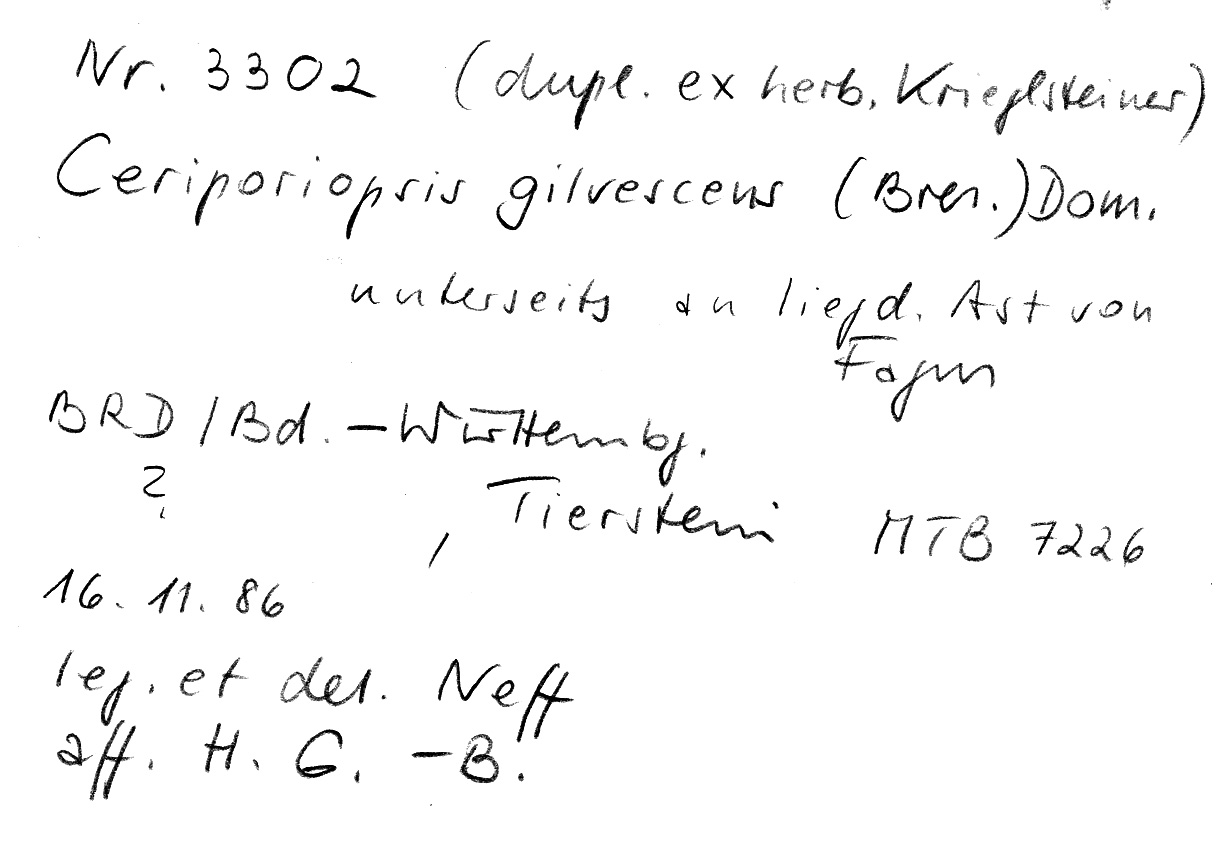 Nr. 3302 (dupl. ex herb. Krieglsteiner)
Ceriporiopsis gilvescens (Bres.) Dom.
unterseits an liegd. Ast von
Fagus
BRD / Bd. - Württembg.
?
, Tierstein MTB 7226
16. 11. 86
leg. et det. Neff
aff. H. G. - B.